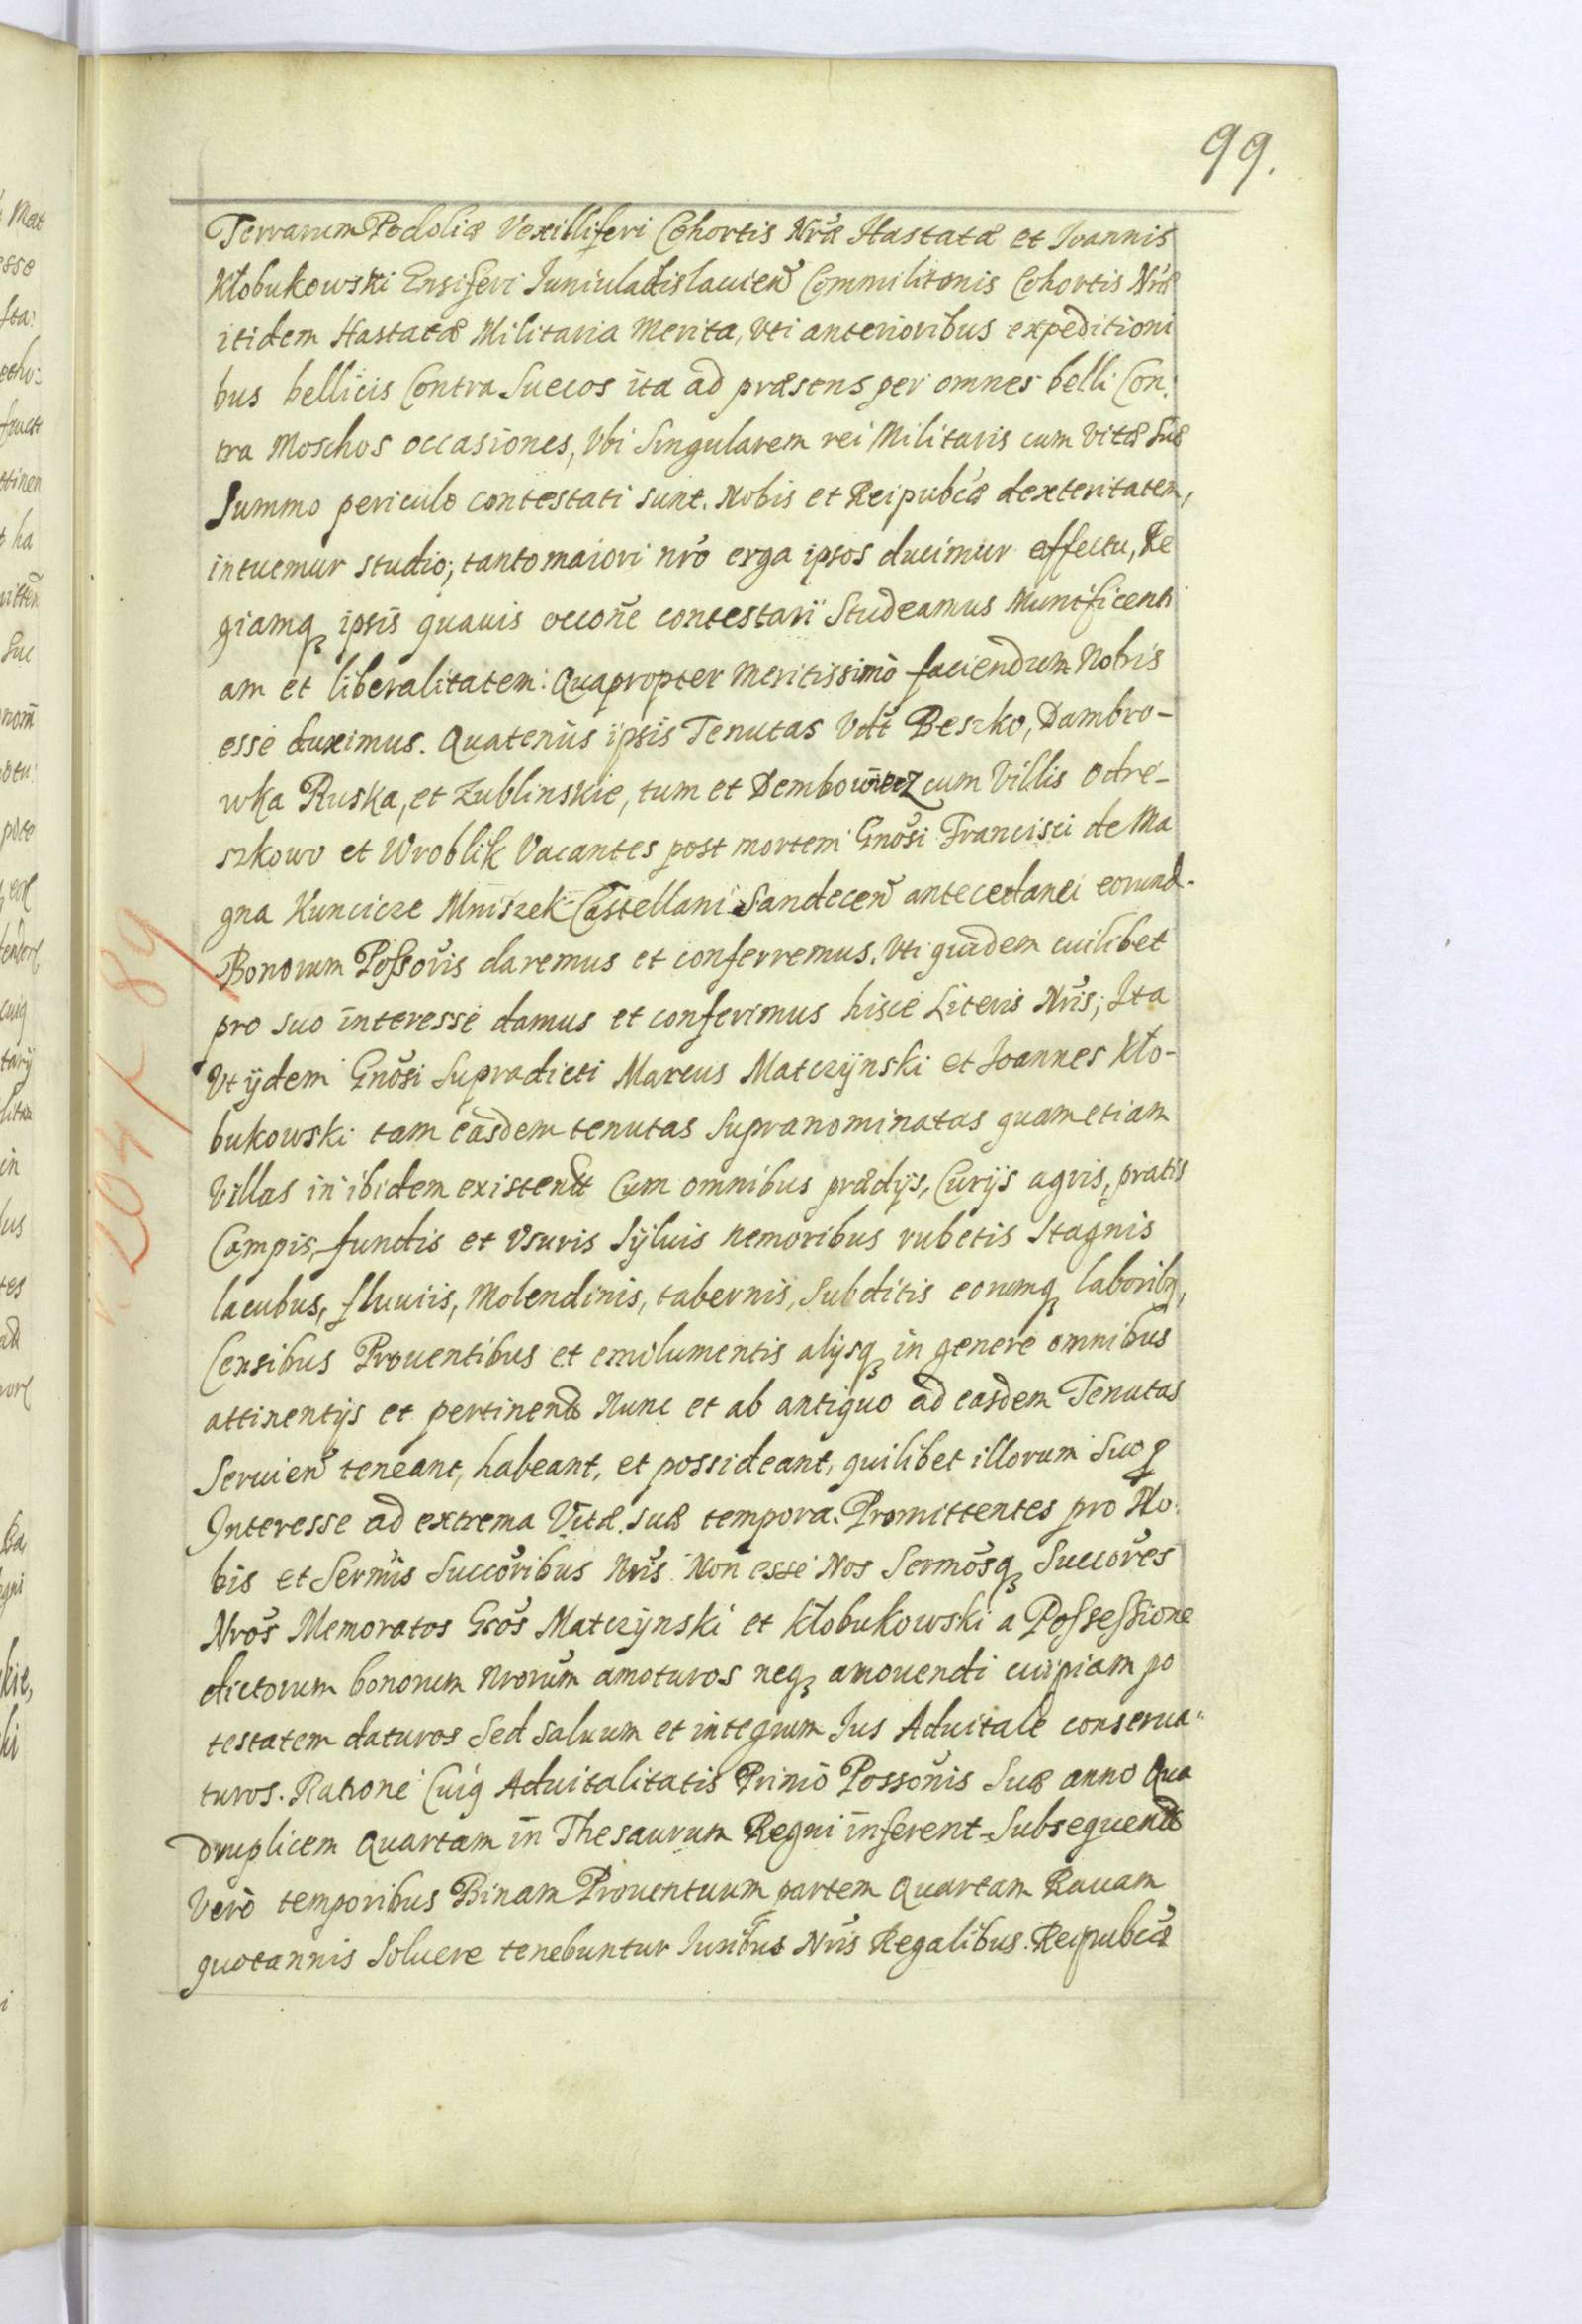 99.
Terrarum Podoliæ Vexilliferi Cohortis Nræ Hastatæ et Joannis
Kłobukowski Ensiferi Juniuladislauien Commilitonis Cohortis Nræ
itidem Hastatæ Militaria Merita, Vti anterioribus expeditioni
bus bellicis Contra Suecos ita ad præsens per omnes belli Con:
tra Moschos occasiones, Vbi Singularem rei Militaris cum Vitæ Suæ
Summo periculo contestati sunt. Nobis et Reipublcæ dexteritatem,
intuemur studio; tanto maiori nro erga ipsos ducimur affectu, Re
giamq ipsis quauis occone contestari Studeamus Munificenti
am et liberalitatem: Quapropter Meritissimò faciendum Nobis
esse duximus. Quatenùs ipsis Tenutas Vdt Beszko, Dambro-
wka Ruska, et Zublinskie, tum et Dembowiecz cum Villis Odrè-
szkowo et Wroblik Vacantes post mortem Gnosi Francisci de Ma
gna Kuncicze Mniszek Castellani Sandecen antecedanei eorund.
Bonorum Possoris daremus et conferremus. Vti quidem cuilibet
pro suo interesse damus et conferimus hisce Literis Nris; Ita
Vt ijdem Gnosi Supradicti Marcus Matczÿnski et Joannes Kło-
bukowski tam easdem tenutas Supranominatas quam etiam
Villas in ibidem existentt Cum omnibus prædijs, Curijs agris, pratis
Campis, fundis et Vsuris Sÿluis nemoribus rubetis Stagnis
lacubus, fluuiis, Molendinis, tabernis, Subditis eorumq laboribq,
Censibus Prouentibus et emolumentis alijsq in genere omnibus
attinentijs et pertinend Nunc et ab antiquo ad easdem Tenutas
Seruien teneant, habeant, et possideant, quilibet illorum Suo p
Interesse ad extrema Vitæ suæ tempora. Promittentes pro No:
bis et Sermis Succoribus Nris Non esse Nos Sermosq Succores
Nros Memoratos Gros Matczÿnski et Kłobukowski a Possessione
dictorum bonorum Nrorum amoturos neq amouendi cuipiam po
testatem daturos Sed Saluum et integrum Jus Aduitale conserua-
turos. Ratione Cuiq Aduitalitatis Primo Possonis Suæ anno Qua
druplicem Quartam in Thesaurum Regni inferent Subsequend
Verò temporibus Binam Prouentuum partem Quartam Rauam
quotannis Soluere tenebuntur Juribus Nris Regalibus. Reipublcæ